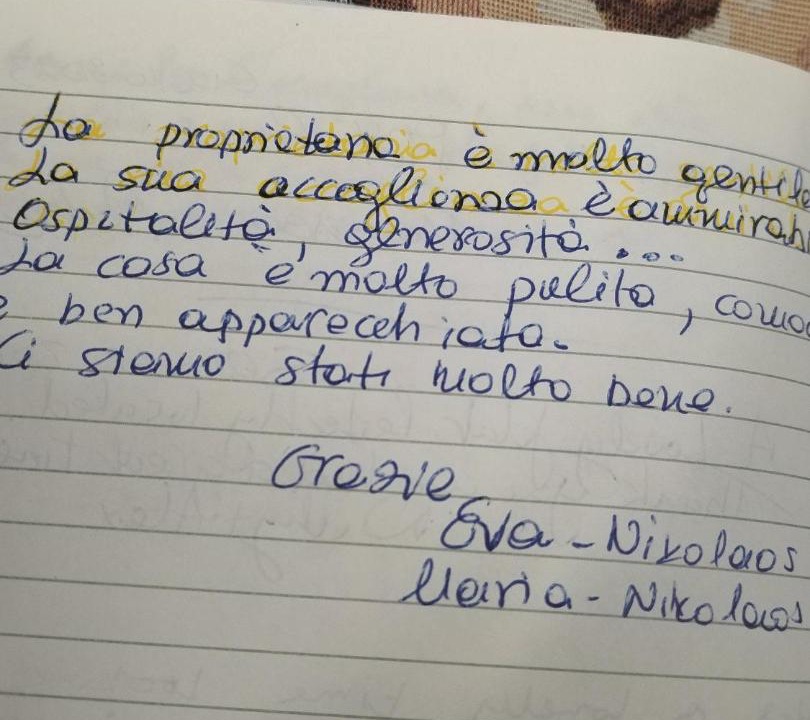 La proprietaria è molto gentile
La sua accoglionza è ammirab
Ospitalità, generosità...
La casa è molto pulita, comod
e ben apparecchiata.
Ci siamo stati molto bene.
Grazie
Eva - Nikolaos
Maria - Nikolaos